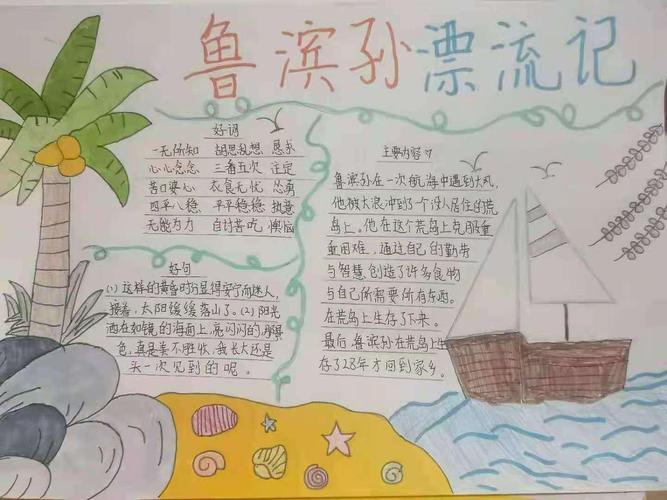 鲁滨孙漂流记
好词
一无所知 胡思乱想 恳求
心心念念 三番五次 注定
苦口婆心 衣食无忧 怂恿
四平八稳 平平稳稳 执意
无能为力 自讨苦吃 懊恼
好句
(1)这样的黄昏时分显得安宁而迷人,
接着,太阳缓缓落山了。(2)阳光
洒在如镜的海面上,亮闪闪的
色,真是美不胜收,我长大还是
头一次见到的呢。
主要内容
鲁滨孙在一次航海中遇到大风,
他被大浪冲到了个没人居住的荒
岛上。他在这个荒岛上克服重
重困难,通过自己的勤劳
与智慧创造了许多食物
与自己所需要所有东西。
在荒岛上生存了下来。
最后鲁滨孙在荒岛上生
存了28年才回到家乡。